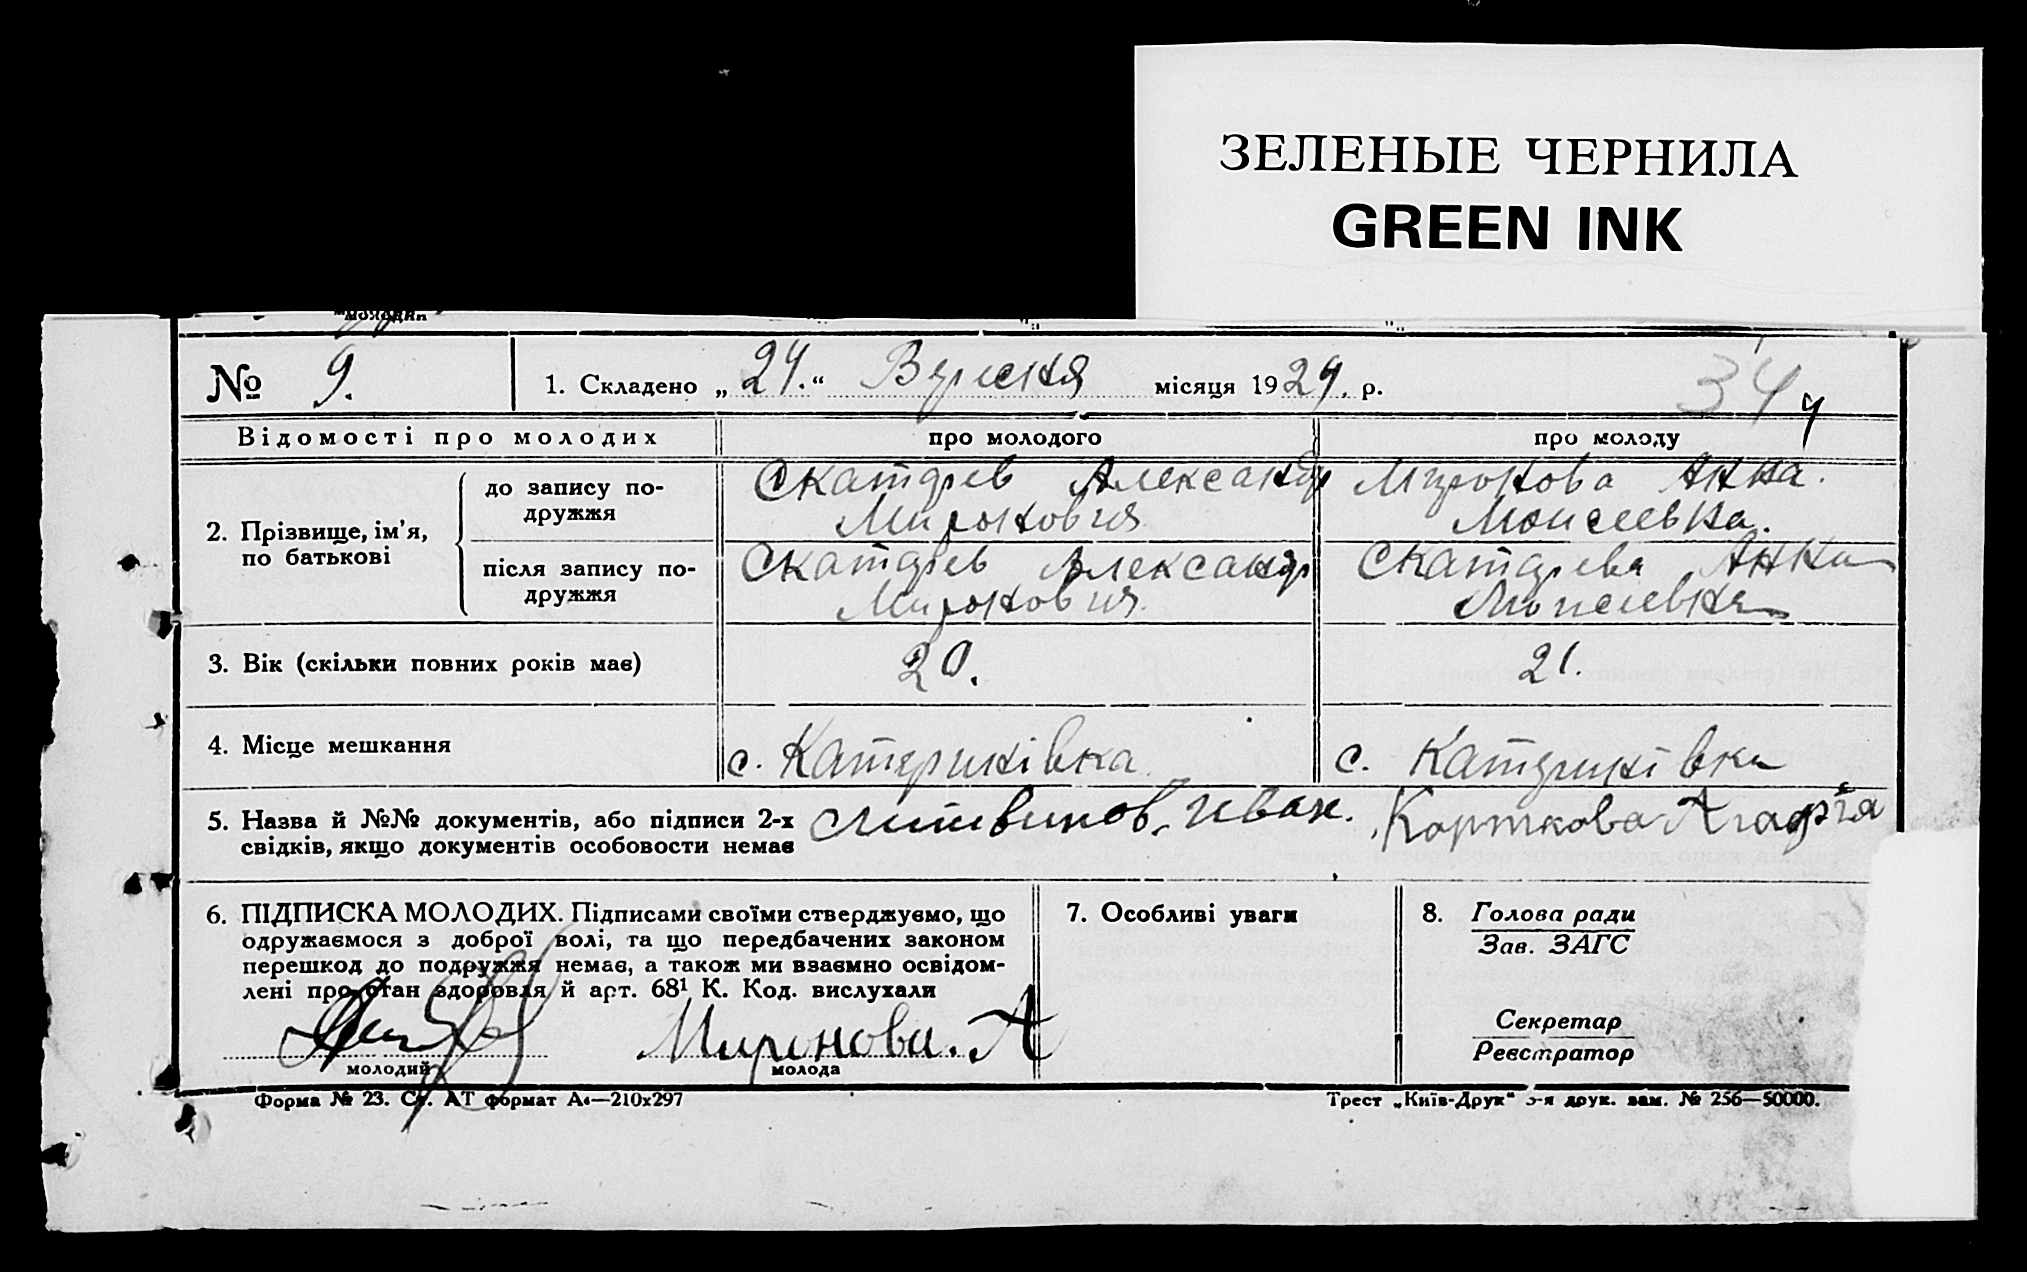 ЗЕЛЕНЫЕ ЧЕРНИЛА
GREEN INK
№ 9. 1. Складено „24.“ Вересня місяця 1929. р. 34
Відомості про молодих про молодого про молоду
2. Прізвище, ім'я, по батькові
до запису по-
дружжя
Скатдрев Александр
Миронович
Миронова Анна.
Моисеевна.
після запису по-
дружжя
Скатдрев Александр
Миронович
Скатдрева Анна
Моисеевна
3. Вік (скільки повних років має) 20. 21.
4. Місце мешкання с. Катеринівка с. Катеринівка
5. Назва й №№ документів, або підписи 2-х
свідків, якщо документів особовости немає
Литвинов. Иван. Корткова Агафія
6. ПІДПИСКА МОЛОДИХ. Підписами своїми стверджуємо, що
одружаємося з доброї волі, та що передбачених законом
перешкод до подружжя немає, а також ми взаємно освідом-
лені про стан здоровля й арт. 68¹ К. Код. вислухали
Миронова. А
молодий молода
7. Особливі уваги
8. Голова ради
Зав. ЗАГС
Секретар
Реєстратор
Форма № 23. Ст. АТ формат А₄—210х297
Трест „Київ-Друк“ 3-я друк. зам. № 256—50000.